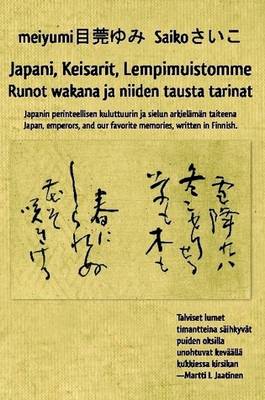 meiyumi目莞ゆみ Saikoさいこ
Japani, Keisarit, Lempimuistomme
Runot wakana ja niiden tausta tarinat
Japanin perinteellisen kuluttuurin ja sielun arkielämän taiteena
Japan, emperors, and our favorite memories, written in Finnish.
雪降れハ
冬こもりせる
草も木も
春に
しられぬ
花そ咲きける
Talviset lumet
timantteina säihkyvät
puiden oksilla
unohtuvat keväällä
kukkiessa kirsikan
—Martti I. Jaatinen